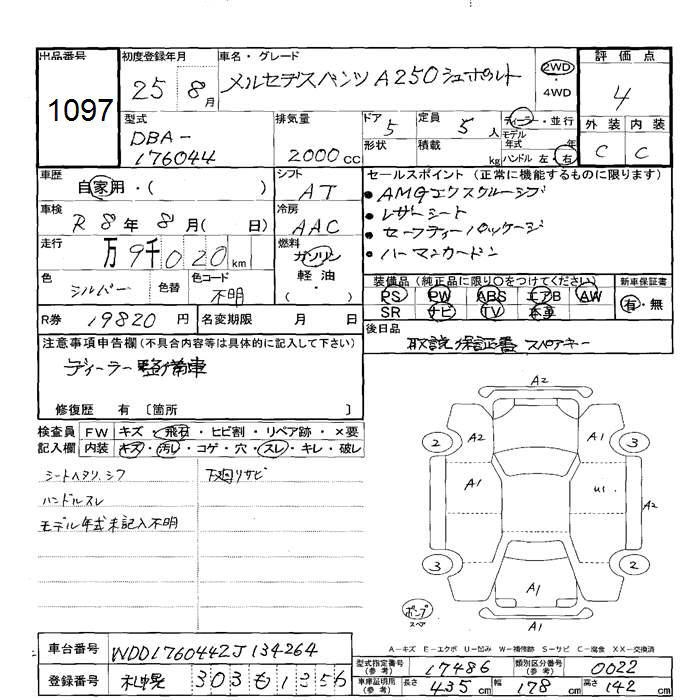 出品番号
1097
初度登録年月
25年 8月
車名・グレード
メルセデスベンツ A250シュポルト
2WD
4WD
評価点
4
外装 内装
C C
型式
DBA-
176044
排気量
2000cc
ドア
5
形状
定員
5人
積載
kg
ディーラー・並行
モデル年式 年
ハンドル 左・右
車歴
自家用・( )
シフト
AT
セールスポイント (正常に機能するものに限ります)
・AMGエクスクルーシブ
・レザーシート
・セーフティーパッケージ
・ハーマンカードン
車検
R 8年 8月( 日)
冷房
AAC
走行
万9千020km
燃料
ガソリン
軽油
( )
色
シルバー
色替
色コード
不明
装備品(純正品に限り○をつけてください)
PS PW ABS エアB AW
SR ナビ TV 本革
新車保証書
有・無
R券 19820円
名変期限 月 日
後日品
取説 保証書 スペアキー
注意事項申告欄(不具合内容等は具体的に記入して下さい)
ディーラー整備車
修復歴 有〔箇所 〕
検査員 FW キズ・飛石・ヒビ割・リペア跡・×要
記入欄 内装 キズ・汚レ・コゲ・穴・スレ・キレ・破レ
シートヘタリ、シワ
ハンドルスレ
モデル年式未記入不明
下廻りサビ
A2
2 A2 A1 3
A1 U1 A2
3 2
A1
ポンプ
スペア
A1
A-キズ E-エクボ U-凹み W-補修跡 S-サビ C-腐食 XX-交換済
車台番号 WDD1760442J134264
登録番号 札幌 303 も 1356
型式指定番号(参考) 17486
類別区分番号(参考) 0022
車庫証明用(参考) 長さ 435cm 幅 178cm 高さ 142cm